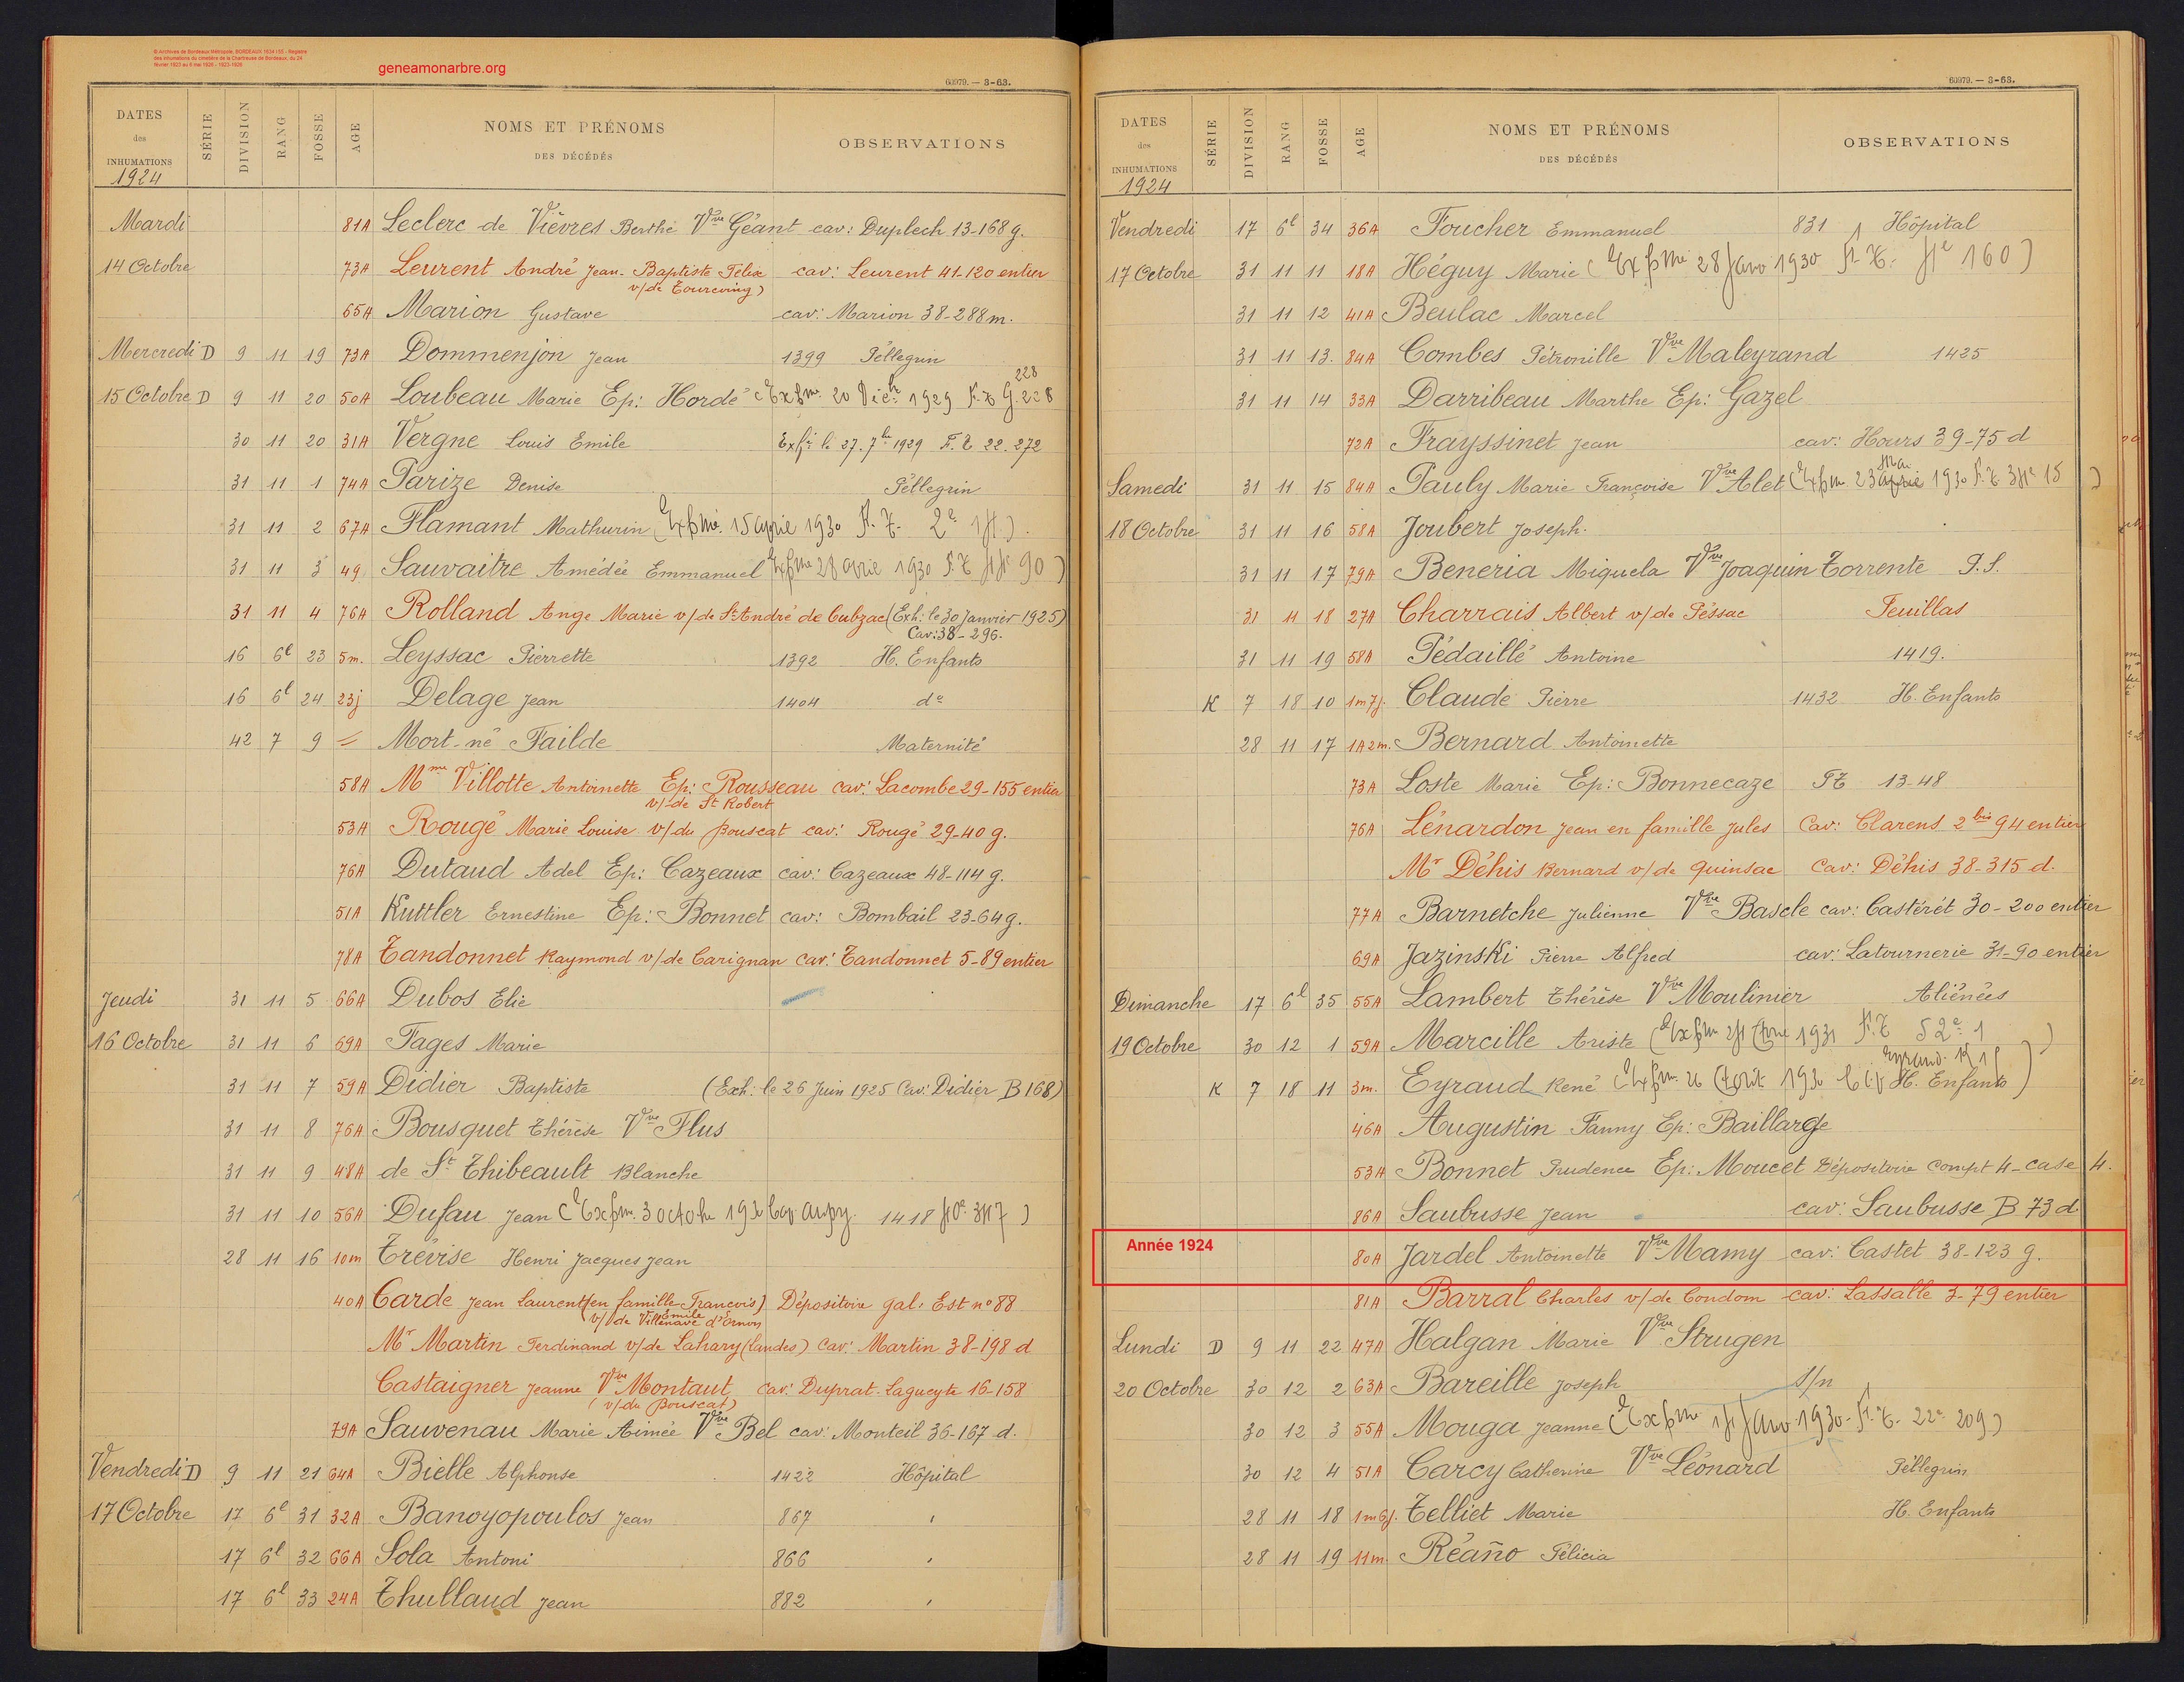 © Archives de Bordeaux Métropole, BORDEAUX 1924 I 55 - Registre
des inhumations du cimetière de la Chartreuse de Bordeaux, du 24
février 1923 au 6 mai 1926 - 1923-1926
geneamonarbre.org
60979. — 3-63.
DATES des INHUMATIONS SÉRIE DIVISION RANG FOSSE AGE NOMS ET PRÉNOMS DES DÉCÉDÉS OBSERVATIONS
1924
Mardi 81A Leclerc de Vièvres Berthe Vve Géant cav: Duplech 13-168 g.
14 Octobre 73A Leurent André Jean-Baptiste Félix cav: Leurent 41-120 entier
v/de Tourcoing)
65A Marion Gustave cav: Marion 38-288 m.
Mercredi D 9 11 19 73A Dommenjon Jean 1399 Pellegrin
228
15 Octobre D 9 11 20 50A Loubeau Marie Ep: Hordé 20 1929 228
30 11 20 31A Vergne Louis Emile le 27. 7bre 1929 22. 272
31 11 1 74A Parize Denise Pellegrin
31 11 2 67A Flamant Mathurin 15 1930 2e
31 11 3 49 Sauvaitre Amédée Emmanuel 28 1930 90)
31 11 4 76A Rolland Ange Marie v/de St André de Cubzac (Exh: le 30 Janvier 1925)
Cav: 38-296.
16 6l 23 5m. Leyssac Pierrette 1392 H. Enfants
16 6l 24 23j Delage Jean 1404 do
42 7 9 Mort-né Failde Maternité
58A Mme Villotte Antoinette Ep: Rousseau cav: Lacombe 29-155 entier
v/de St Robert
53A Rougé Marie Louise v/du Bouscat cav: Rougé 29-40 g.
76A Dutaud Adel Ep: Cazeaux cav: Cazeaux 48-114 g.
51A Kuttler Ernestine Ep: Bonnet cav: Bombail 23-64 g.
78A Tandonnet Raymond v/de Carignan cav: Tandonnet 5-89 entier
Jeudi 31 11 5 66A Dubos Elie
16 Octobre 31 11 6 69A Fages Marie
31 11 7 59A Didier Baptiste (Exh: le 26 Juin 1925 Cav: Didier B 168)
31 11 8 76A Bousquet Thérèse Vve Flus
31 11 9 48A de St Thibeault Blanche
31 11 10 56A Dufau Jean 3 octobre 1418
28 11 16 10m Trévise Henri Jacques Jean
40A Carde Jean Laurent (en famille François) Dépositoire gal. Est no 88
Emile
(v/de Villenave d'Ornon
Mr Martin Ferdinand v/de Laharry (Landes) Cav: Martin 38-198 d
Castaigner Jeanne Vve Montaut cav: Duprat-Lagueyte 16-158
(v/du Bouscat)
79A Sauvenau Marie Aimée Vve Bel cav: Monteil 36-167 d.
Vendredi D 9 11 21 64A Bielle Alphonse 1422 Hôpital
17 Octobre 17 6l 31 32A Banoyopoulos Jean 867
17 6l 32 66A Sola Antoni 866
17 6l 33 24A Thullaud Jean 882
60979. — 3-63.
DATES des INHUMATIONS SÉRIE DIVISION RANG FOSSE AGE NOMS ET PRÉNOMS DES DÉCÉDÉS OBSERVATIONS
1924
Vendredi 17 6l 34 36A Foucher Emmanuel 831 Hôpital
17 Octobre 31 11 11 18A Héguy Marie 28 Janv 1930 160)
31 11 12 41A Beulac Marcel
31 11 13. 84A Combes Pétronille Vve Maleyrand 1425
31 11 14 33A Darribeau Marthe Ep: Gazel
72A Frayssinet Jean cav: Hours 39-75 d
Mai
Samedi 31 11 15 84A Pauly Marie Françoise Vve Alet 23 1930 15)
18 Octobre 31 11 16 58A Joubert Joseph.
31 11 17 79A Beneria Miquela Vve Joaquin Torrente P.S.
31 11 18 27A Charrais Albert v/de Péssac Feuillas
31 11 19 58A Pédaillé Antoine 1419.
K 7 18 10 1m7j. Claude Pierre 1432 H. Enfants
28 11 17 1A2m. Bernard Antoinette
73A Loste Marie Ep: Bonnecaze 13-48
76A Lénardon Jean en famille Jules Cav: Clarens 2 bis 94 entier
Mr Déhis Bernard v/de Quinsac Cav: Déhis 38-315 d.
77A Barnetche Julienne Vve Bascle cav: Castérét 30-200 entier
69A Jazinski Pierre Alfred cav: Latournerie 31-90 entier
Dimanche 17 6l 35 55A Lambert Thérèse Vve Moulinier Aliénées
19 Octobre 30 12 1 59A Marcille Ariste 1931 52e 1)
K 7 18 11 3m. Eyraud René 26 H. Enfants)
46A Augustin Fanny Ep: Baillarge
53A Bonnet Prudence Ep: Moucet Dépositoire Compt 4-case 4.
86A Saubusse Jean cav: Saubusse B 73 d
Année 1924
80A Jardel Antoinette Vve Mamy cav: Castet 38-123 g.
81A Barral Charles v/de Condom cav: Lassalle 3-79 entier
Lundi D 9 11 22 47A Halgan Marie Vve Strugen
20 Octobre 30 12 2 63A Bareille Joseph S/n
30 12 3 55A Mouga Jeanne Janv 1930 22e 209)
30 12 4 51A Carcy Catherine Vve Léonard Pellegrin
28 11 18 1m6j. Telliet Marie H. Enfants
28 11 19 11m. Réaño Félicia